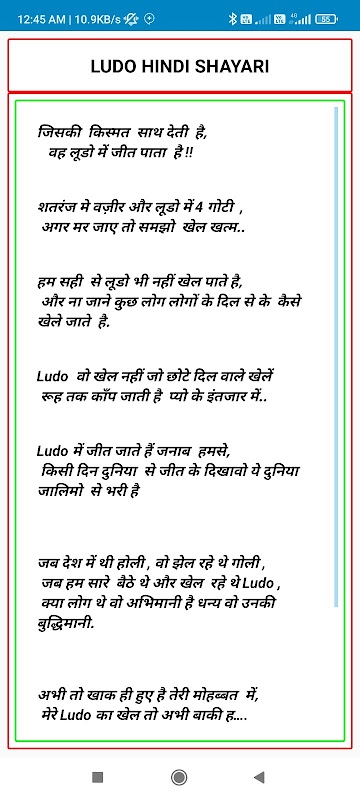 12:45 AM | 10.9KB/s
4G
55
LUDO HINDI SHAYARI
जिसकी किस्मत साथ देती है,
वह लूडो में जीत पाता है !!
शतरंज मे वज़ीर और लूडो में 4 गोटी ,
अगर मर जाए तो समझो खेल खत्म..
हम सही से लूडो भी नहीं खेल पाते है,
और ना जाने कुछ लोग लोगों के दिल से के कैसे
खेले जाते है.
Ludo वो खेल नहीं जो छोटे दिल वाले खेलें
रूह तक काँप जाती है प्यो के इंतजार में..
Ludo में जीत जाते हैं जनाब हमसे,
किसी दिन दुनिया से जीत के दिखावो ये दुनिया
जालिमो से भरी है
जब देश में थी होली , वो झेल रहे थे गोली ,
जब हम सारे बैठे थे और खेल रहे थे Ludo ,
क्या लोग थे वो अभिमानी है धन्य वो उनकी
बुद्धिमानी.
अभी तो खाक ही हुए है तेरी मोहब्बत में,
मेरे Ludo का खेल तो अभी बाकी ह....